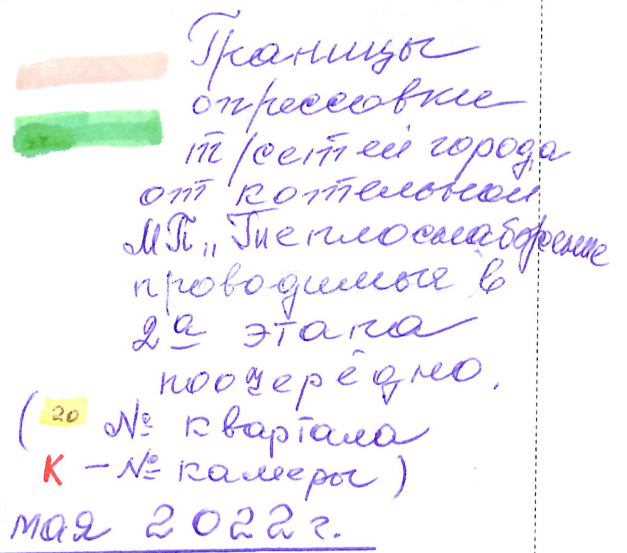 Границы
опрессовки
т/сетей города
от котельной
МП „Теплоснабжение
проводимые в
2а этапа
поочерёдно.
(20 № квартала
К - № камеры)
мая 2022г.